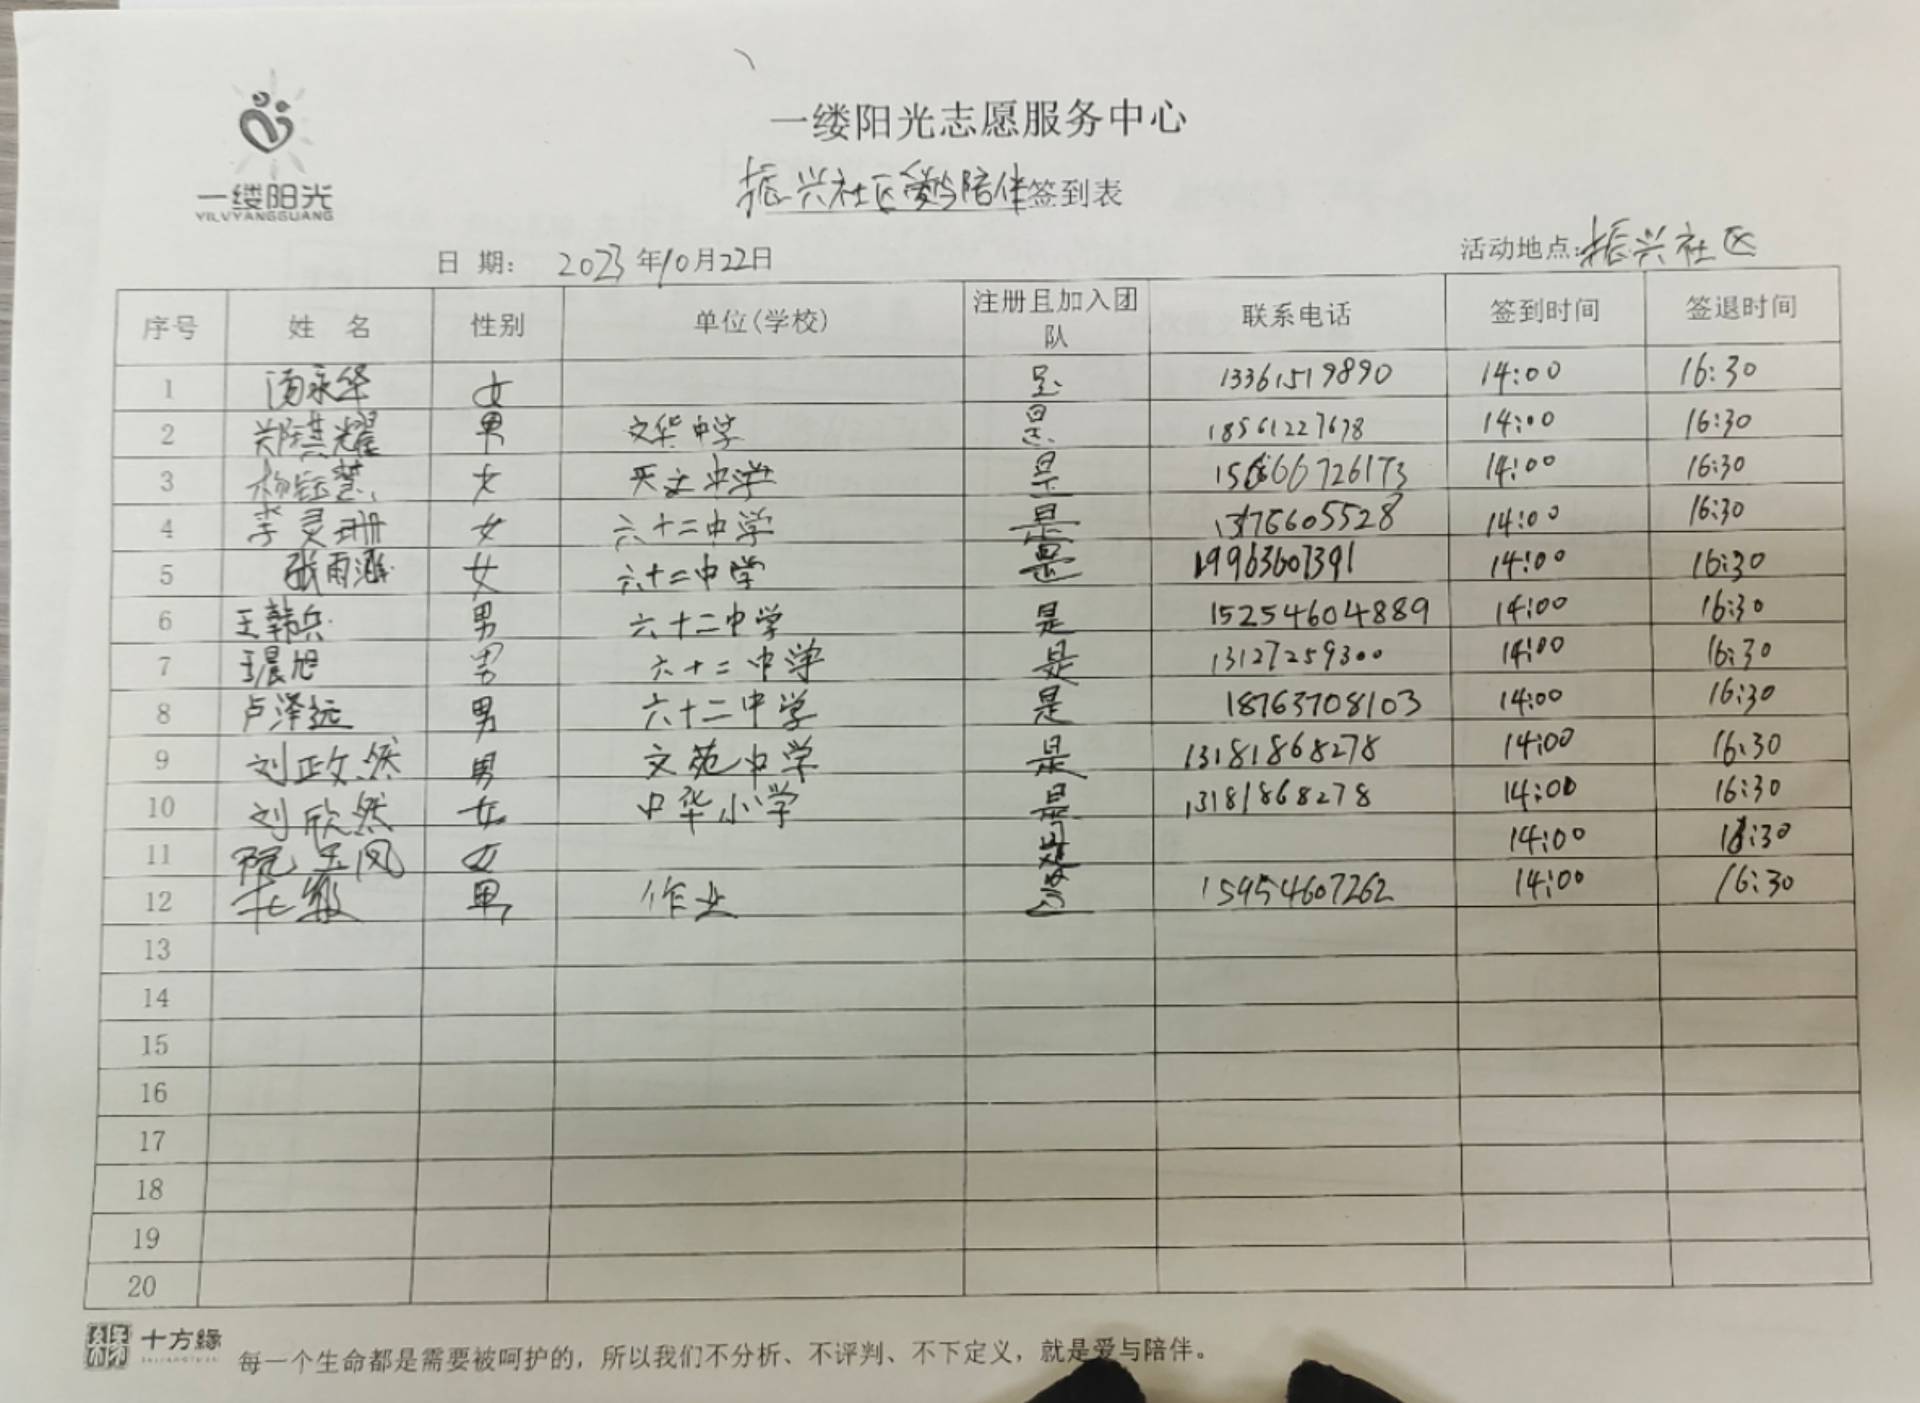 一缕阳光
YILVYANGGUANG
一缕阳光志愿服务中心
振兴社区爱与陪伴签到表
日 期： 2023年10月22日 活动地点:振兴社区
序号 姓 名 性别 单位(学校) 注册且加入团队 联系电话 签到时间 签退时间
1 永华 女 是 13361519890 14:00 16:30
2 郑棋耀 男 文华中学 是 18561227678 14:00 16:30
3 杨钰慧 女 天立中学 是 15666726173 14:00 16:30
4 李灵珊 女 六十二中学 是 14:00 16:30
5 张雨涵 女 六十二中学 是 19963607391 14:00 16:30
6 王韩兵 男 六十二中学 是 15254604889 14:00 16:30
7 王晨旭 男 六十二中学 是 13127259300 14:00 16:30
8 卢泽远 男 六十二中学 是 18763708103 14:00 16:30
9 刘政然 男 文苑中学 是 13181868278 14:00 16:30
10 刘欣然 女 中华小学 是 13181868278 14:00 16:30
11 玉凤 女 是 14:00 16:30
12 男 作业 15954607262 14:00 16:30
13
14
15
16
17
18
19
20
十方缘
每一个生命都是需要被呵护的，所以我们不分析、不评判、不下定义，就是爱与陪伴。